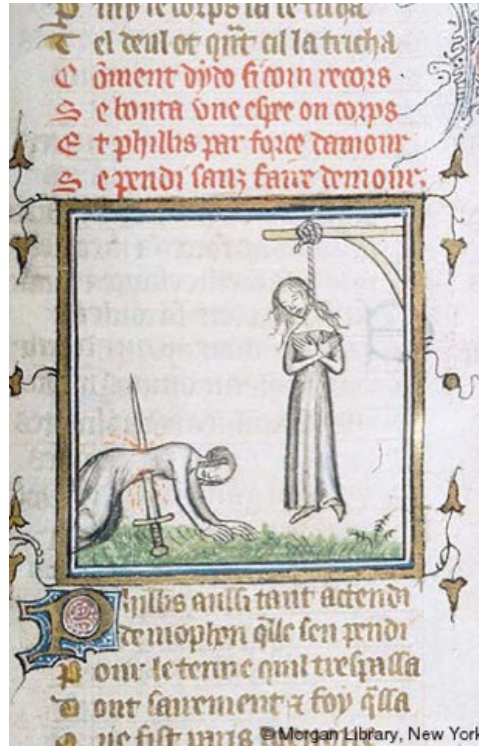 my le corps la se ficha
Tel deul ot qnt cil la tricha
Coment dydo si com recors
Se bouta vne espee ou corps
Et phillis par force damour
Se pendi sanz faire demour.
Phillis aussi tant actendi
demophon qlle sen pendi
Pour le terme quil trespassa
dont sairement & foy qssa
ne fist paris
©Morgan Library, New York